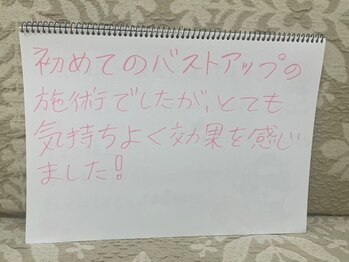 初めてのバストアップの
施術でしたが、とても
気持ちよく効果を感じ
ました!